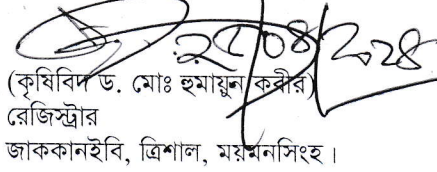 ২৫/০৪/২০২৪
(কৃষিবিদ ড. মোঃ হুমায়ুন কবীর)
রেজিস্ট্রার
জাককানইবি, ত্রিশাল, ময়মনসিংহ।